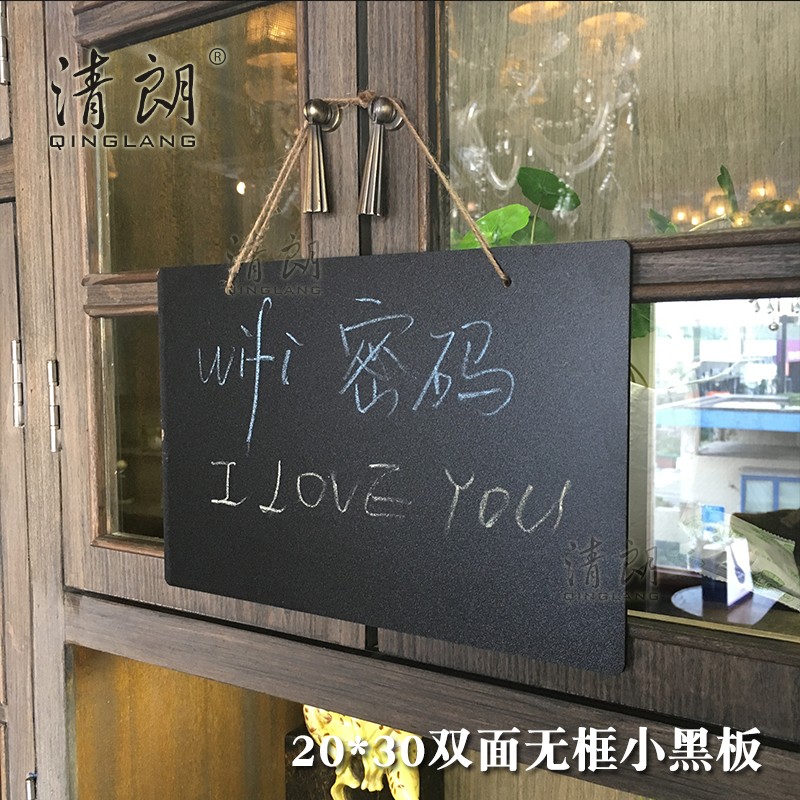 清朗®
QINGLANG
清朗
QINGLANG
wifi 密码
I LOVE YOU
清朗
QINGLANG
20*30双面无框小黑板